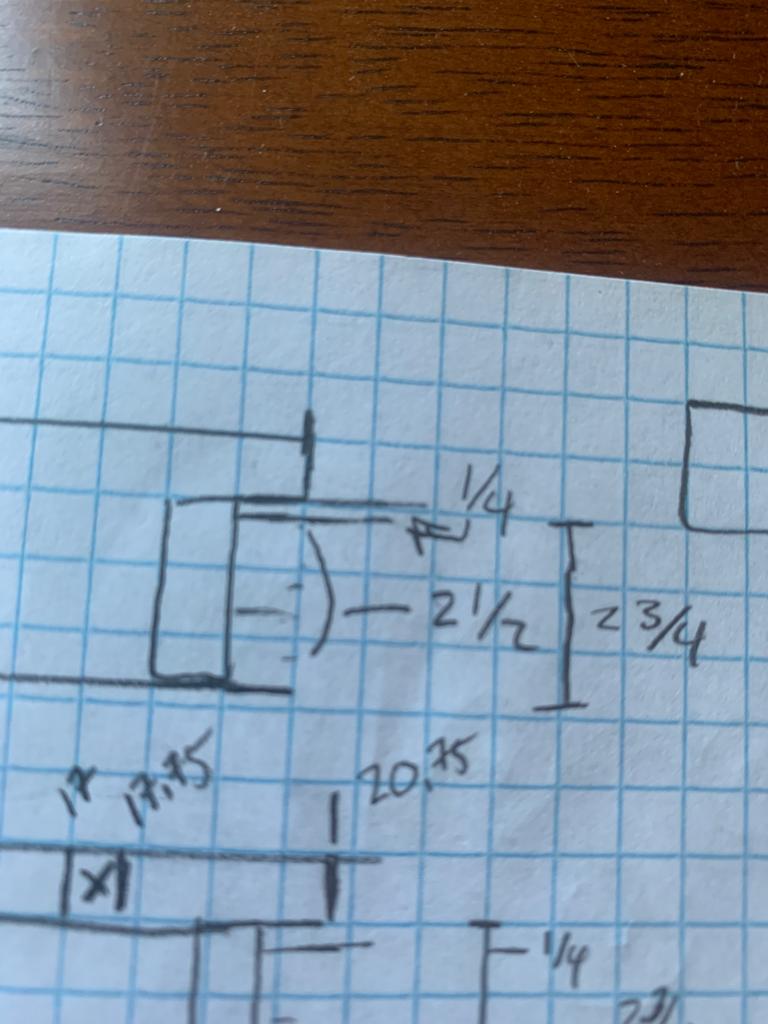 1/4
2 1/2 2 3/4
17 17,75 20,75
X
1/4